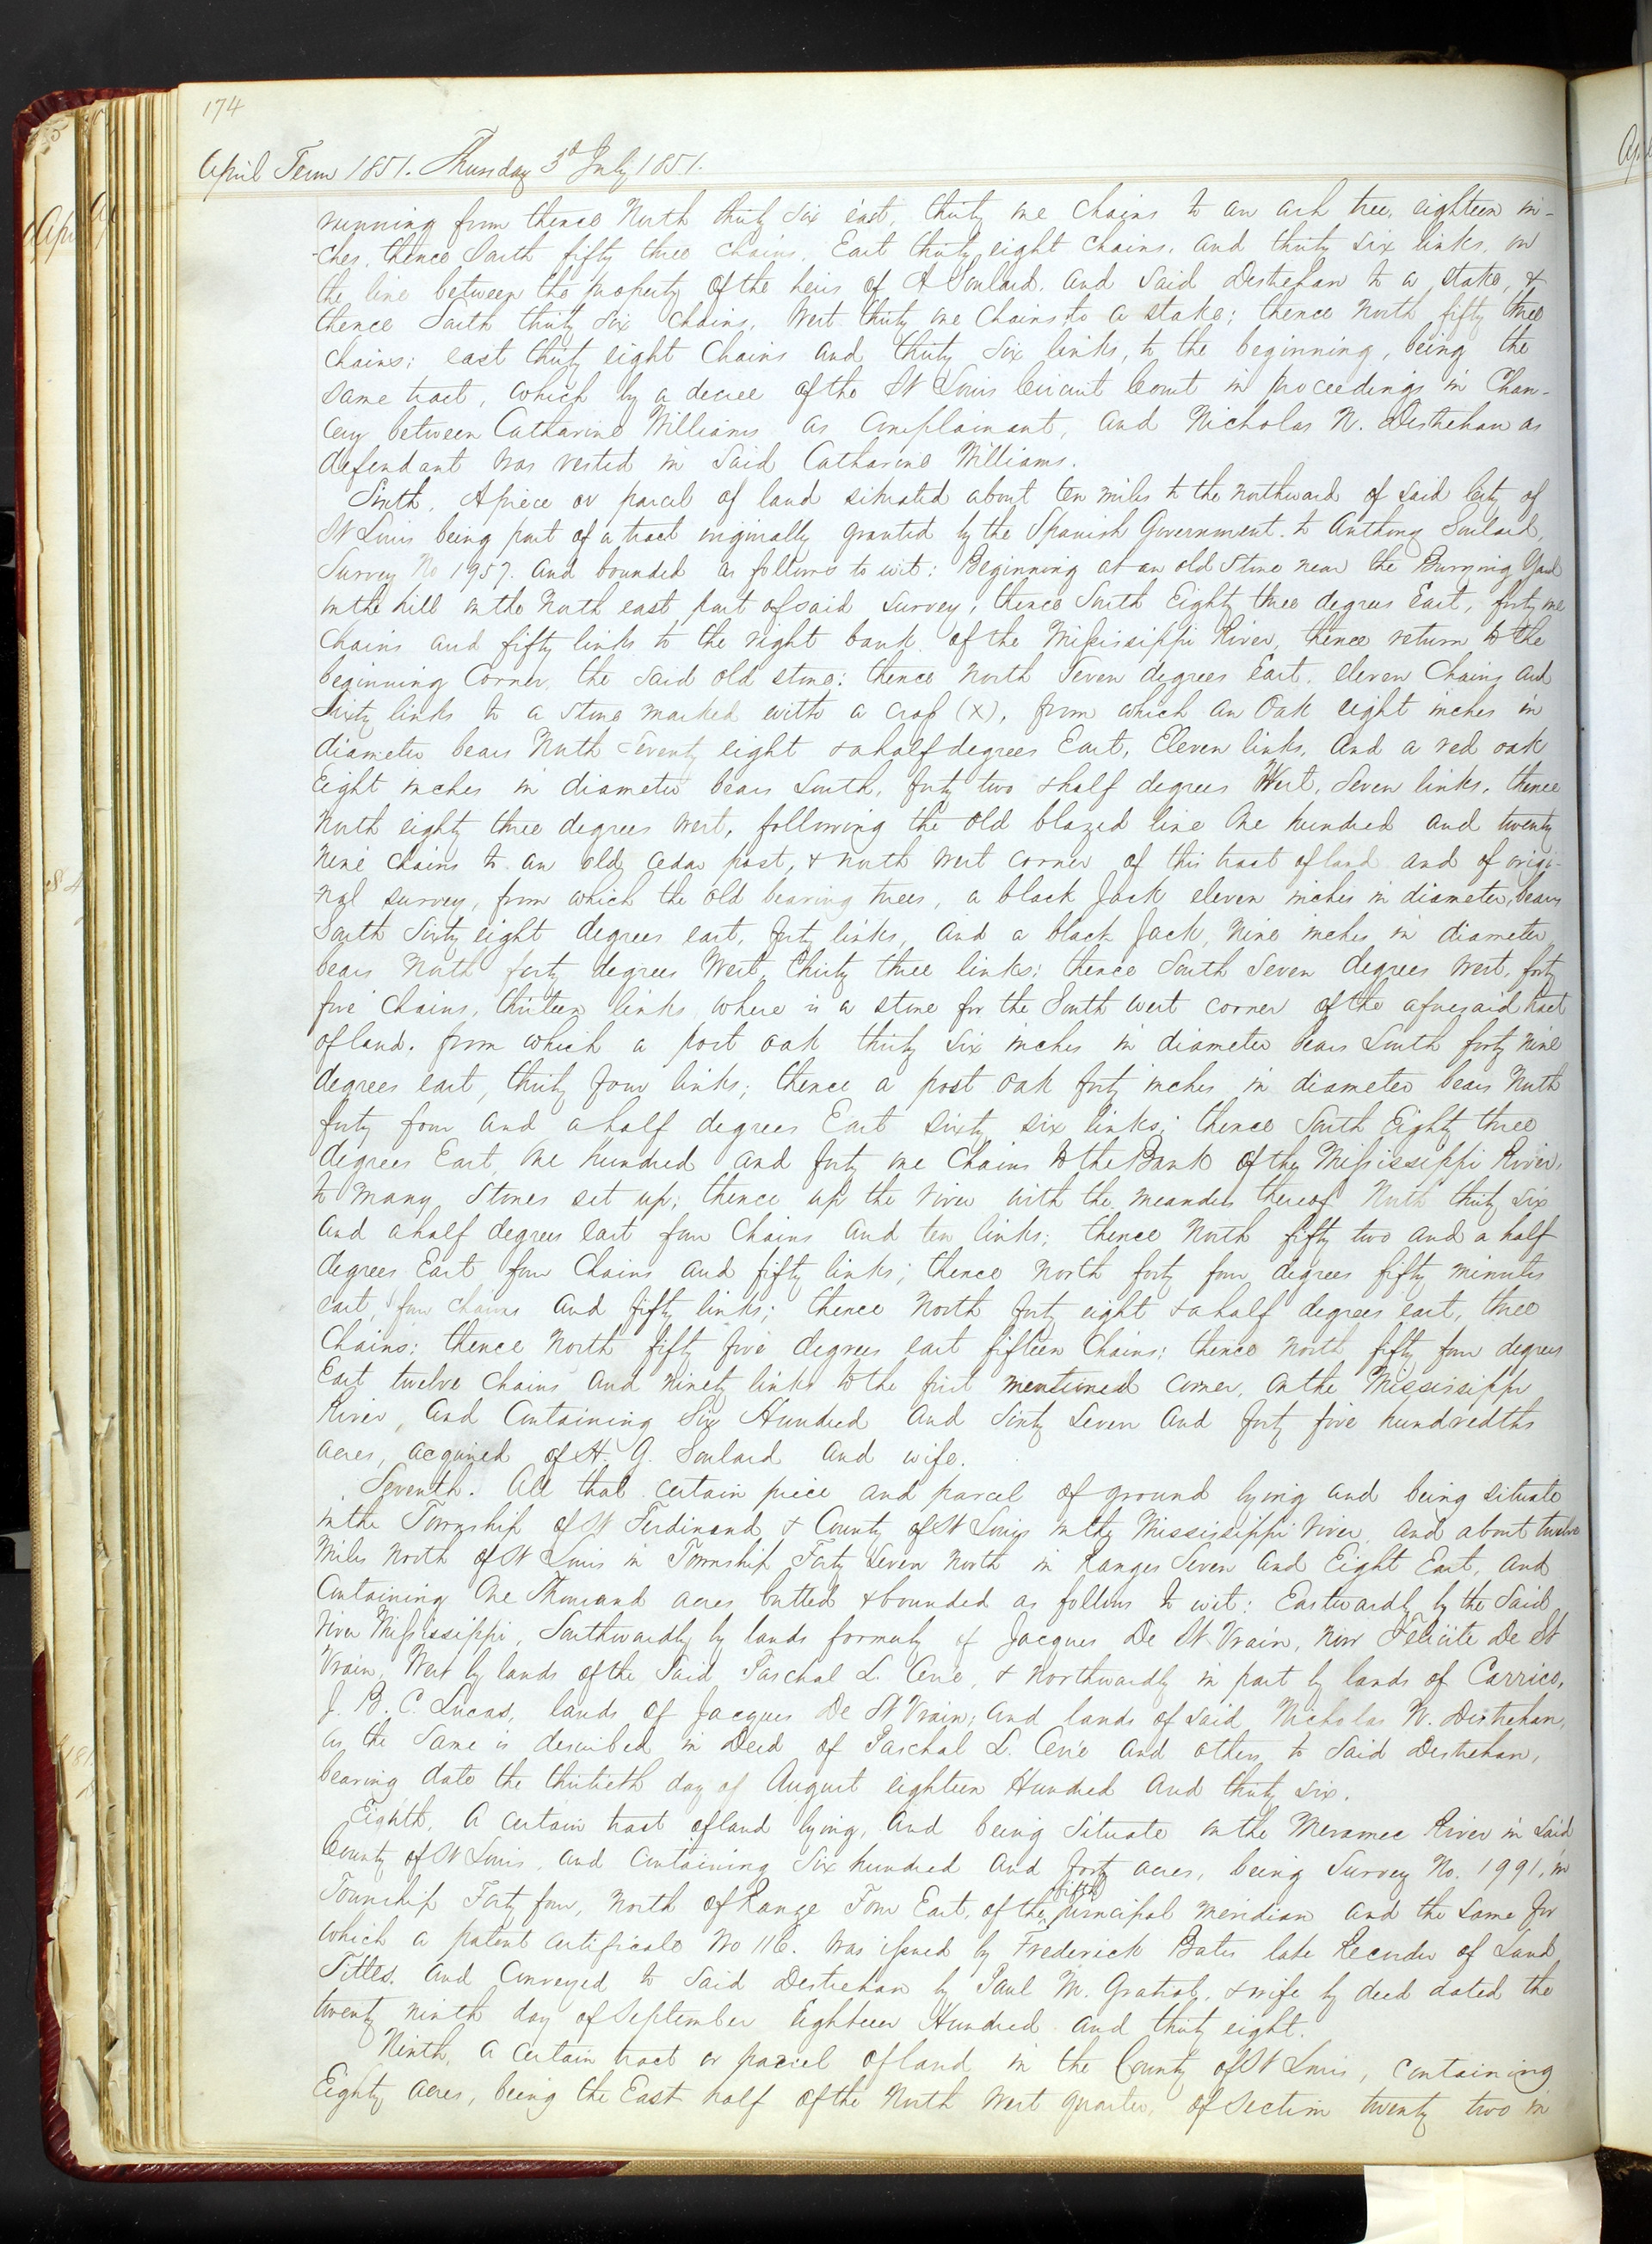 174
April Term 1851. Thursday 3d July 1851.
running from thence North thirty six east, thirty one chains to an ash tree, eighteen in-
-ches, thence South fifty three chains, East thirty eight chains, and thirty six links, on
the line between the property of the heirs of A Soulard, and said Destrehan to a stake, &
thence South thirty six chains, West thirty one chains to a stake; thence North fifty three
chains; east thirty eight chains and thirty six links, to the beginning, being the
same tract, which by a decree of the St Louis Circuit Court in proceedings in Chan-
cery between Catharine Williams as Complainant, and Nicholas N. Destrehan as
defendant was vested in said Catharine Williams.
Sixth. A piece or parcel of land situated about ten miles to the northward of said City of
St Louis being part of a tract originally granted by the Spanish Government to Anthony Soulard,
Survey No 1957. and bounded as follows to wit: Beginning at an old Stone near the Burying Yard
on the hill on the North east part of said survey; thence South Eighty three degrees East, forty one
chains and fifty links to the right bank of the Mississippi River, thence return to the
beginning Corner, the said old stone: thence North Seven degrees East, eleven Chains and
Sixty links to a stone marked with a cross (X), from which an Oak eight inches in
diameter bears North Seventy eight & a half degrees East, Eleven links, and a red oak
Eight inches in diameter bears South, forty two & half degrees West, Seven links, thence
North eighty three degrees West, following the old blazed line One hundred and twenty
nine chains to an old cedar post, & north west corner of this tract of land and of origi-
nal survey, from which the old bearing trees, a black Jack eleven inches in diameter, bears
South Sixty eight degrees east, forty links, and a black Jack, nine inches in diameter
bears North forty degrees West, thirty three links; thence South Seven degrees West, forty
five chains, thirteen links where is a stone for the South west corner of the aforesaid tract
of land. from which a post oak thirty six inches in diameter bears South forty nine
degrees east, thirty four links; thence a post oak forty inches in diameter bears North
forty four and a half degrees East sixty six links; thence South Eighty three
degrees East, One hundred and forty one Chains to the Bank of the Mississippi River,
to many Stones set up; thence up the river with the meanders thereof North thirty six
and a half degrees east four chains and ten links; thence North fifty two and a half
degrees East four Chains and fifty links; thence North forty four degrees fifty minutes
east, four chains and fifty links; thence North forty eight & a half degrees east, three
Chains; thence North fifty five degrees east fifteen Chains; thence North fifty four degrees
East twelve Chains and ninety links to the first mentioned corner, on the Mississippi
River, and Containing Six Hundred and Sixty Seven and forty five hundredths
acres, acquired of H. G. Soulard and wife.
Seventh. All that certain piece and parcel of ground lying and being situate
in the Township of St Ferdinand & County of St Louis on the Mississippi River, and about twelve
miles North of St Louis in Township Forty Seven North in Ranges Seven and Eight East, and
Containing One Thousand acres butted & bounded as follows to wit: Eastwardly by the Said
River Mississippi, Southwardly by lands formerly of Jacques De St Vrain, now Felicite De St
Vrain, West by lands of the Said Paschal L. Cerré, & Northwardly in part by lands of Carrico,
J. B. C. Lucas, lands of Jacques De St Vrain; and lands of said Nicholas N. Destrehan,
as the same is described in Deed of Paschal L. Cerré and others to Said Destrehan,
bearing date the thirtieth day of August eighteen Hundred and thirty six.
Eighth. A certain tract of land lying, and being Situate on the Meramec River in Said
County of St Louis, and Containing Six hundred and forty acres, being Survey No. 1991, in
Township Forty four, North of Range Four East, of the fifth principal meridian and the same for
which a patent certificate No 116. was issued by Frederick Bates late Recorder of Land
Titles. and Conveyed to Said Destrehan by Paul M. Gratiot, & wife by deed dated the
twenty ninth day of September Eighteen Hundred and thirty eight.
Ninth, A Certain tract or parcel of land in the County of St Louis, containing
Eighty acres, being the East half of the North West quarter, of Section twenty two in